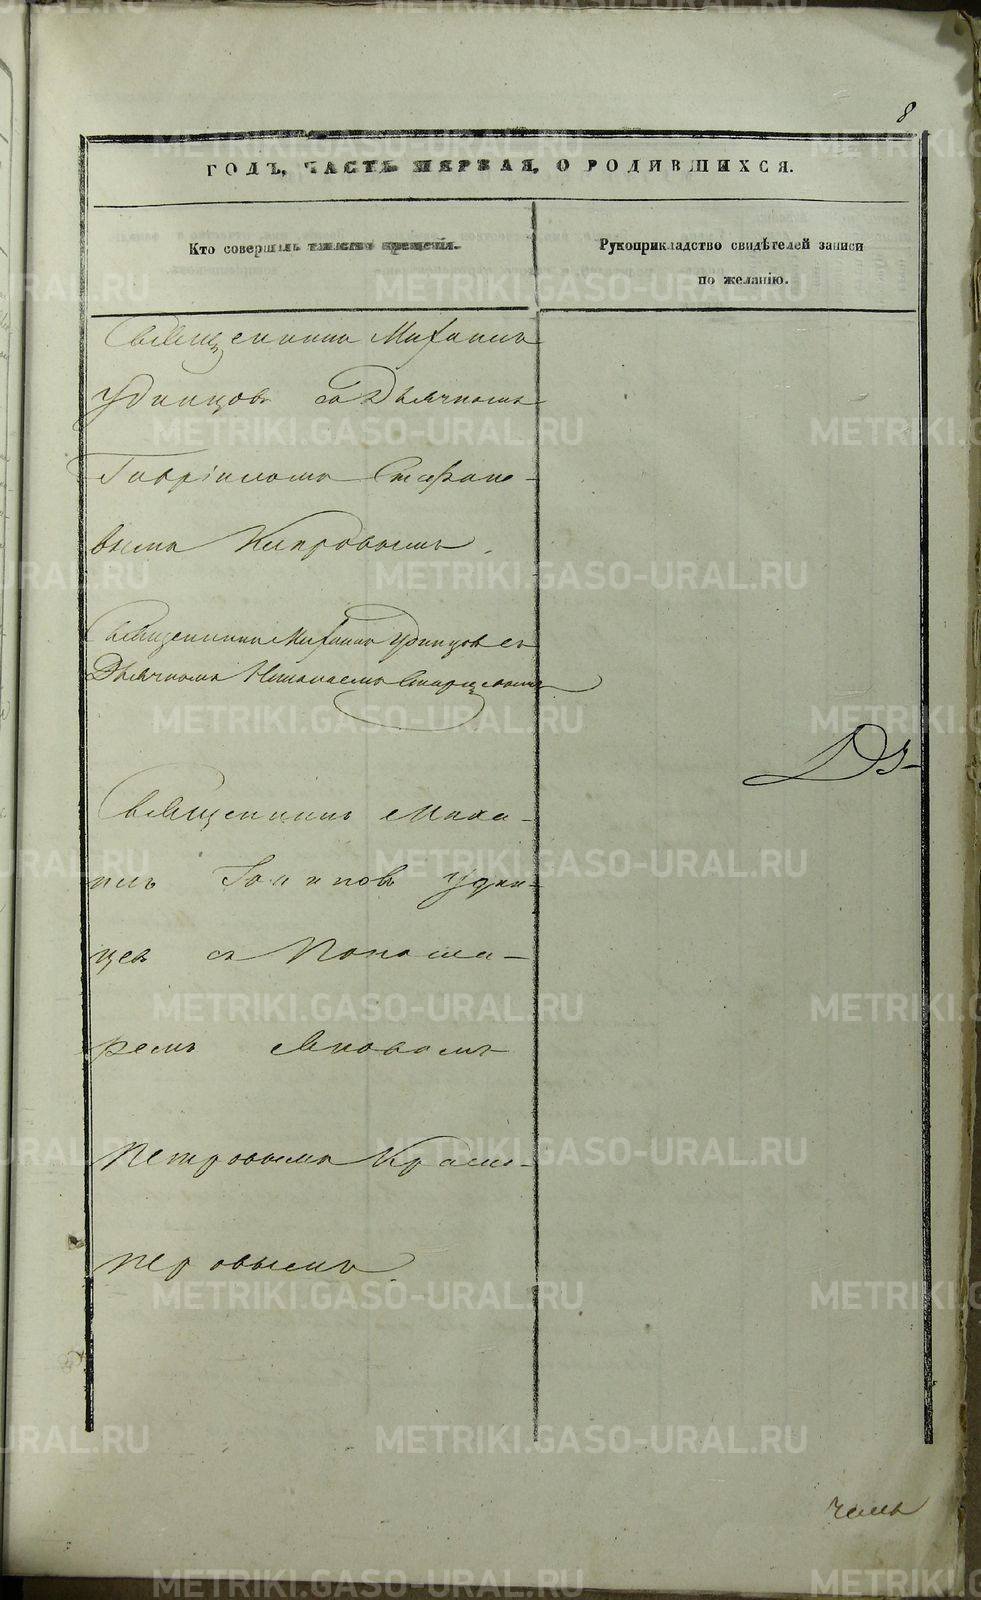 8
ГОДЪ, ЧАСТЬ ПЕРВАЯ, О РОДИВШИХСЯ.
Кто совершалъ таинство крещенія.
Рукоприкладство свидѣтелей записи
по желанію.
Священникъ Михаилъ
Удинцовъ съ Дьячкомъ
Гавріиломъ Стефано-
вымъ Кипровымъ.
Священникъ Михаилъ Удинцовъ съ
Дьячкомъ Николаемъ
Священникъ Миха-
илъ Удин-
цевъ съ Понома-
ремъ
Петровымъ Красно-
перовымъ.
METRIKI.GASO-URAL.RU